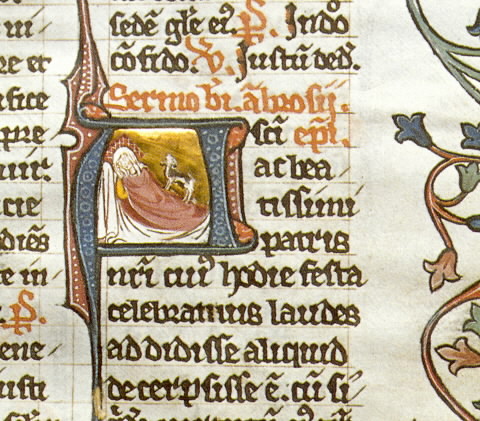 re er
ifice
expre
cie
diēs
te in
P̄.
ene
usti
sedē gl̄e eꝰ. P̄. In dō
cōfido. V̄. Iustū ded̄.
Sermo bī. ābrosij.
Ascī ep̄i.
ac bea
tissimi
patris
nr̄i cuiꝰ hodie festa
celebramus laudes
addidisse aliquid
decerpsisse ē. cū si